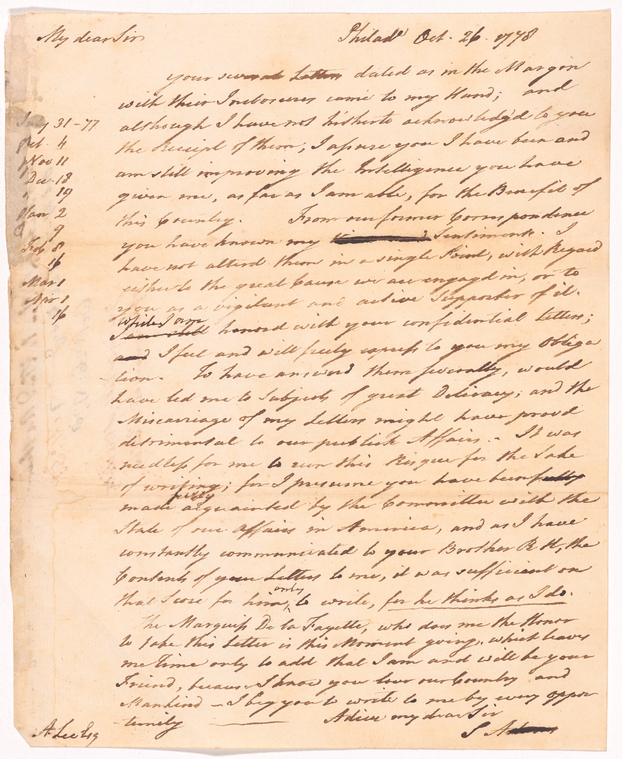 My dear Sir Philad. Oct. 26. 1778
your several Letters dated as in the Margin
with their Inclosures came to my Hand; and
31-77
although I have not hitherto acknowledgd to you
4
the Receipt of them, I assure you I have been and
Nov 11
am still improving the Intelligence you have
Dec 18
19
given me, as far as I am able, for the Benefit of
Jan 2
this Country. From our former Correspondence
9
you have known my Sentiments. I
Feb 8
have not alterd them in a single Point, with Regard
16
either to the great Cause we are engagd in, or to
Mar 1
you as a vigilant and active Supporter of it.
1
16
While I am
I am still honord with your confidential Letters;
and I feel and will freely express to you my Obliga
tion. To have answerd them severally, would
have led me to Subjects of great Delicacy; and the
Miscarriage of my Letters might have provd
detrimental to our publick Affairs. - It was
needless for me to run this Risque for the Sake
of writing; for I presume you have been fully
fully
made acquainted by the Committee with the
State of our Affairs in America, and as I have
constantly communicated to your Brother R H, the
Contents of your Letters to me, it was sufficient on
only
that Score for him to write, for he thinks as I do.
The Marquiss De la Fayette, who does me the Honor
to take this Letter is this Moment going, which leaves
me time only to add that I am and will be your
Friend, because I know you love our Country and
Mankind - I beg you to write to me by every oppor
tunity Adieu my dear Sir
A Lee Esq S Adams